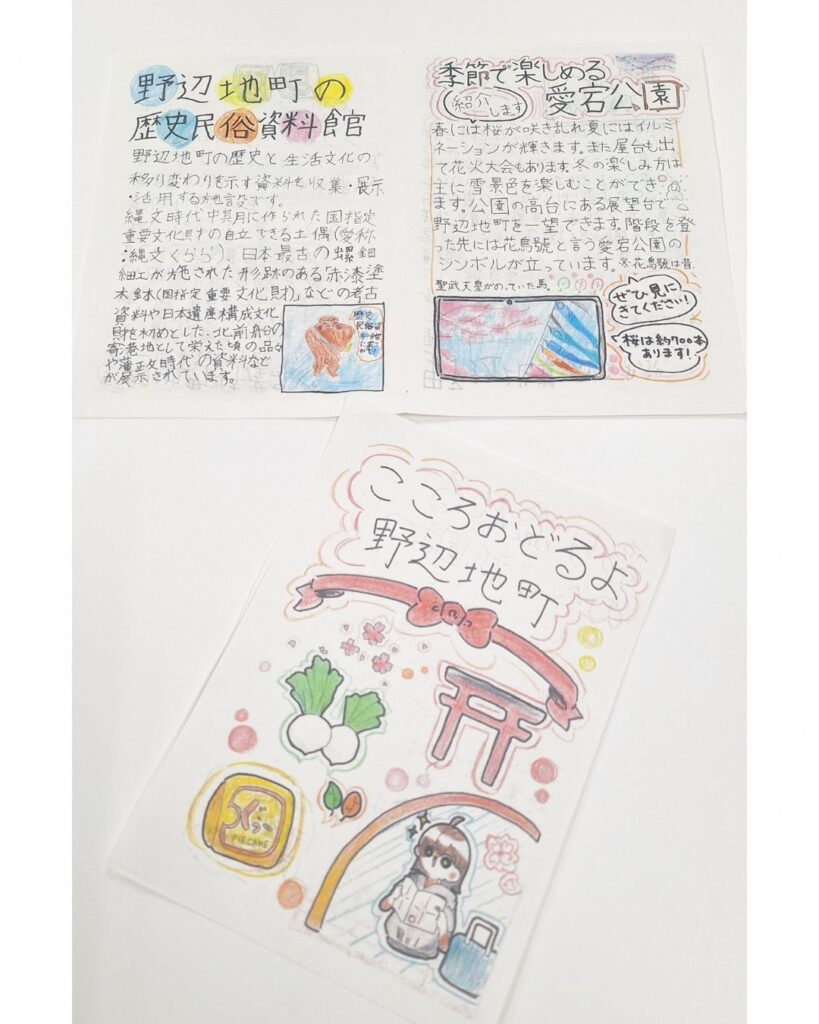 野辺地町の
歴史民俗資料館
野辺地町の歴史と生活文化の
移り変わりを示す資料を収集・展示
・活用する施設です。
縄文時代中期に作られた国指定
重要文化財の自立できる土偶(愛称
:縄文くらら)、日本最古の螺鈿
細工が施された形跡のある「赤漆塗
木鉢(国指定重要文化財)」などの考古
資料や日本遺産構成文化
財を初めとした、北前船の
寄港地として栄えた頃の品々
や藩政時代の資料など
が展示されています。
歴史
民俗資
季節で楽しめる
紹介
します
愛宕公園
春には桜が咲き乱れ夏にはイルミ
ネーションが輝きます。また屋台も出
て花火大会もあります。冬の楽しみ方は
主に雪景色を楽しむことができ
ます。公園の高台にある展望台で
野辺地町を一望できます。階段を登
った先には花鳥號と言う愛宕公園の
シンボルが立っています。※花鳥號は昔、
聖武天皇がのっていた馬。
ぜひ見に
きてください!
桜は約700本
あります!
こころおどるよ
野辺地町